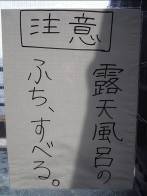 注意
露天風呂の
ふち、すべる。